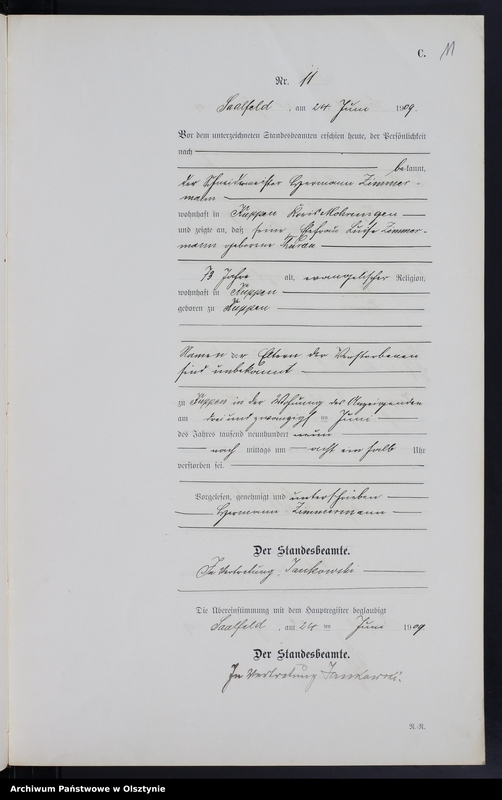 C. 11
Nr. 11
Saalfeld, am 24 Juni 1909.
Vor dem unterzeichneten Standesbeamten erschien heute, der Persönlichkeit
nach
bekannt,
der Schneidermeister Hermann Zimmer-
mann
wohnhaft in Kuppen Kreis Mohrungen
und zeigte an, daß seine Ehefrau Luise Zimmer-
mann geborene
73 Jahre alt, evangelischer Religion,
wohnhaft in Kuppen
geboren zu Kuppen
Namen der Eltern der Verstorbenen
sind unbekannt
zu Kuppen in der Wohnung des Anzeigenden
am drei und zwanzigsten Juni
des Jahres tausend neunhundert neun
nach mittags um acht ein halb Uhr
verstorben sei.
Vorgelesen, genehmigt und unterschrieben
Hermann Zimmermann
Der Standesbeamte.
In Vertretung Jankowski
Die Übereinstimmung mit dem Hauptregister beglaubigt
Saalfeld, am 24 ten Juni 1909
Der Standesbeamte.
In Vertretung Jankowski.
R.-R.
Archiwum Państwowe w Olsztynie